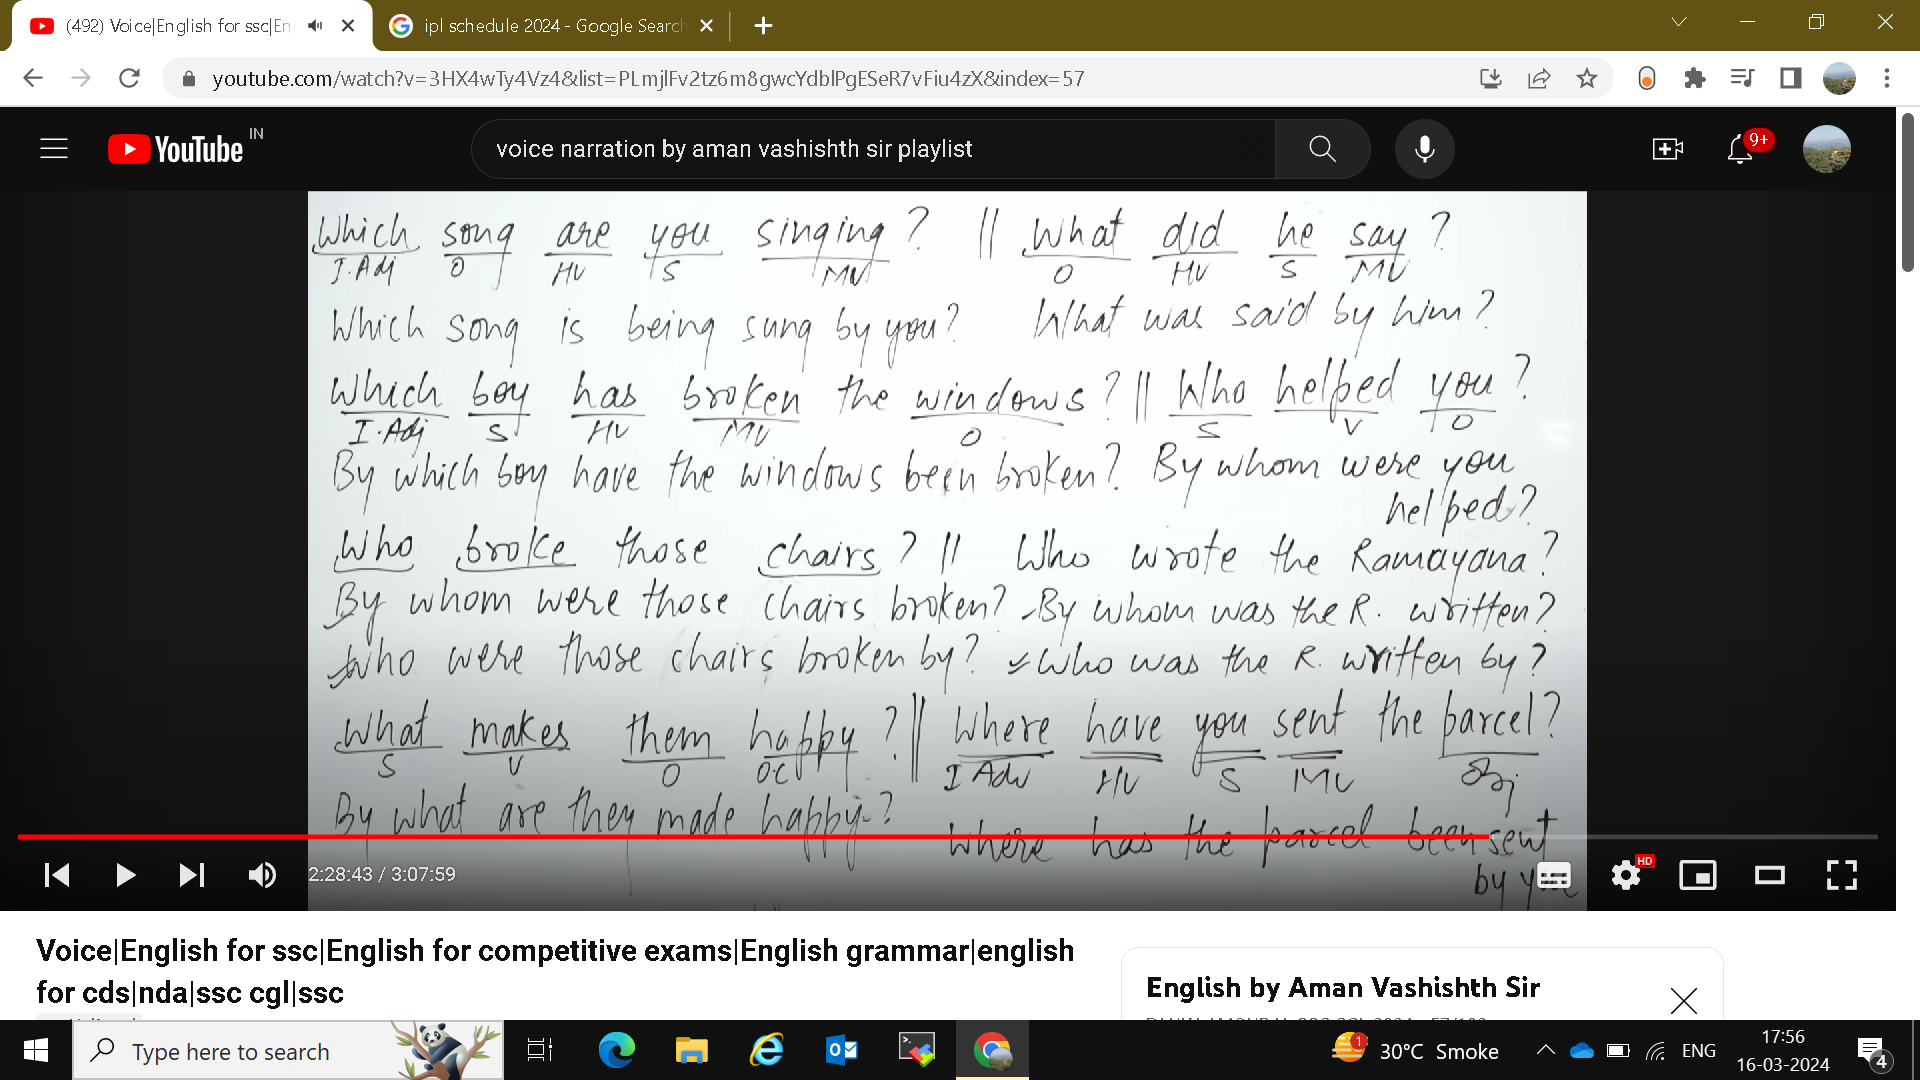 (492) Voice|English for ssc|En
ipl schedule 2024 - Google Search
youtube.com/watch?v=3HX4wTy4Vz4&list=PLmjlFv2tz6m8gwcYdblPgESeR7vFiu4zX&index=57
YouTube IN
voice narration by aman vashishth sir playlist
9+
Which song are you singing? || What did he say?
I.Adj O HV S MV O HV S MV
Which song is being sung by you? What was said by him?
Which boy has broken the windows? || Who helped you?
I.Adj S HV MV O S V O
By which boy have the windows been broken? By whom were you
helped?
Who broke those chairs? || Who wrote the Ramayana?
By whom were those chairs broken? By whom was the R. written?
Who were those chairs broken by? Who was the R. written by?
What makes them happy? || Where have you sent the parcel?
S V O OC I Adv HV S MV Obj
By what are they made happy? Where has the parcel been sent
by
2:28:43 / 3:07:59
HD
Voice|English for ssc|English for competitive exams|English grammar|english
for cds|nda|ssc cgl|ssc
English by Aman Vashishth Sir
Type here to search
1
30°C Smoke
ENG
17:56
16-03-2024
4